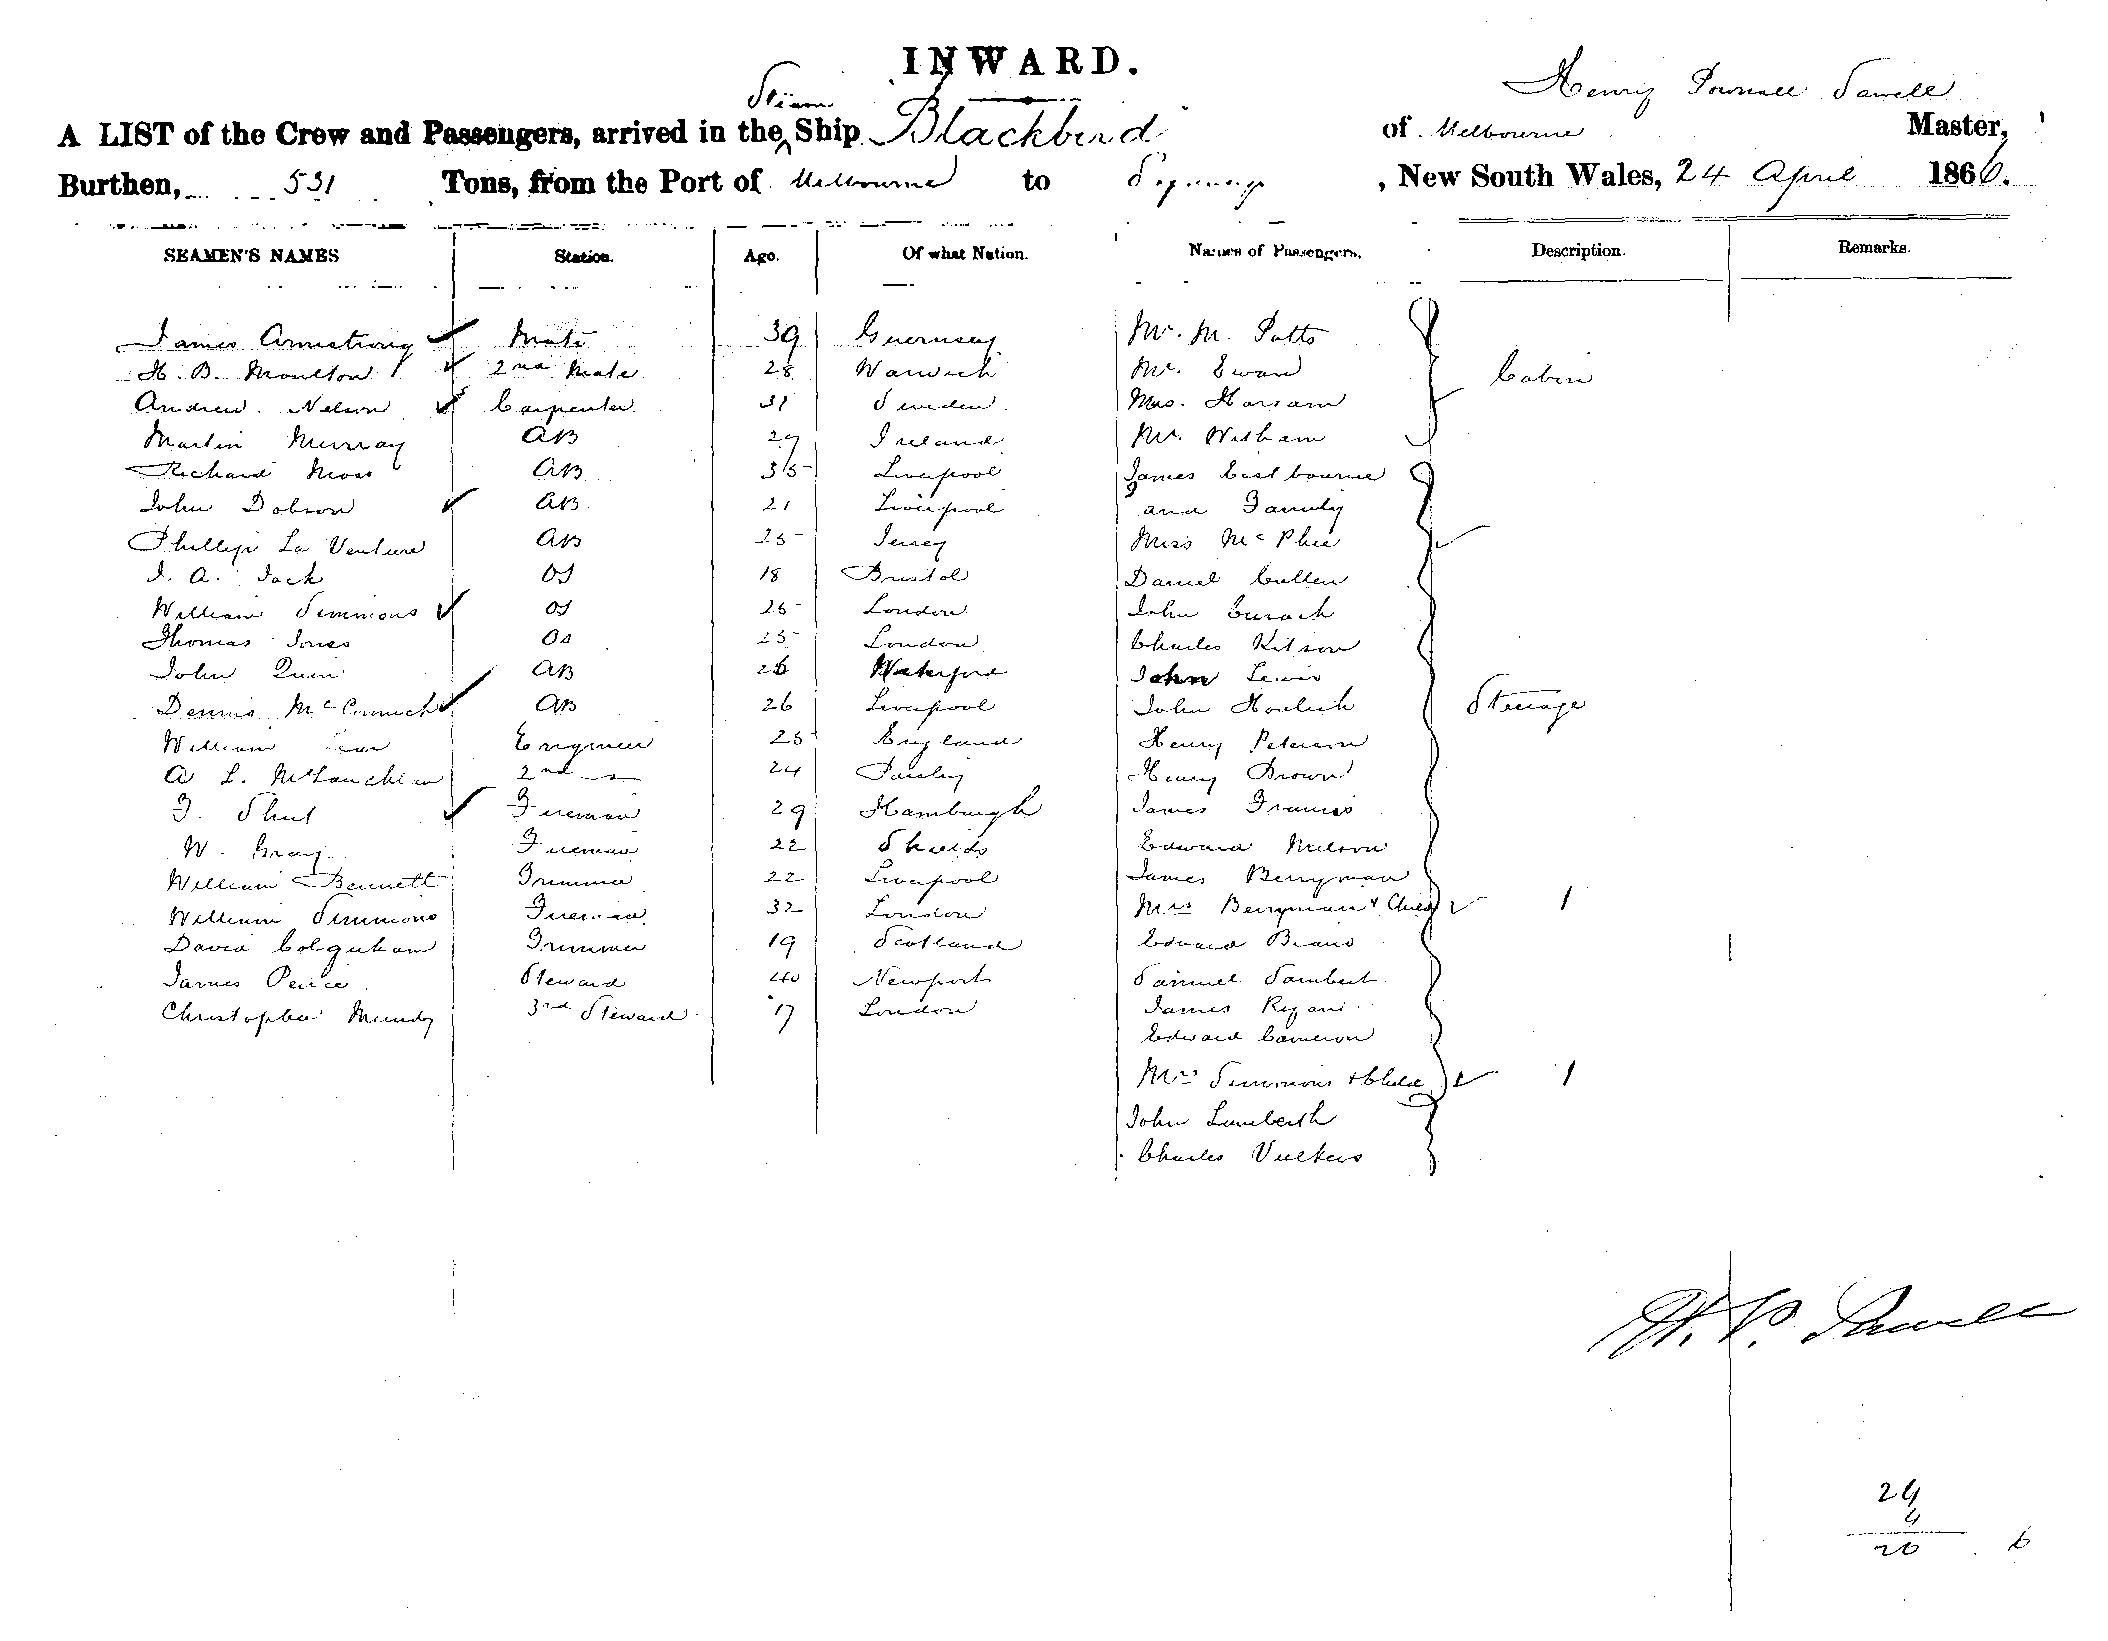 INWARD.
Henry Pownall Sawell
Steam
A LIST of the Crew and Passengers, arrived in the Ship Blackbird of Melbourne Master,
Burthen, 531 Tons, from the Port of Melbourne to Sydney, New South Wales, 24 April 1866.
SEAMEN'S NAMES Station. Age. Of what Nation. Names of Passengers. Description. Remarks.
James Armstrong Mate 39 Guernsey Mr. M. Potts
H. B. Moulton 2nd Mate 28 Warwick Mr. Ewan Cabin
Andrew Nelson Carpenter 31 Sweden Mrs. Horsam
Martin Murray AB 29 Ireland Mr. Witham
Richard Moss AB 35 Liverpool James Eastbourne
John Dobson AB 21 Liverpool and Family
Phillip La Venture AB 25 Jersey Miss McPhee
J. A. Jack OS 18 Bristol Daniel Cullen
William Simmons OS 25 London John Curach
Thomas Jones OS 25 London Charles Kitson
John Quin AB 26 Waterford John Lewis
Dennis McCormick AB 26 Liverpool John Steerage
William Engineer 25 England Henry Peterson
A L. McLauchlan 2nd 24 Paisley Henry Brown
F. Shut Fireman 29 Hamburgh James Francis
W. Gray Fireman 22 Shields Edward Nelson
William Bennett Trimmer 22 Liverpool James Berryman
William Simmons Fireman 32 London Mrs Berryman & Child 1
David Colquham Trimmer 19 Scotland Edward Beans
James Peirce Steward 40 Newport Samuel Lambert
Christopher Mundy 3rd Steward 17 London James Ryan
Edward Cameron
Mrs Simmons & Child 1
John Lamberth
Charles Vulkers
H. P. Sawell
24
4
20 6